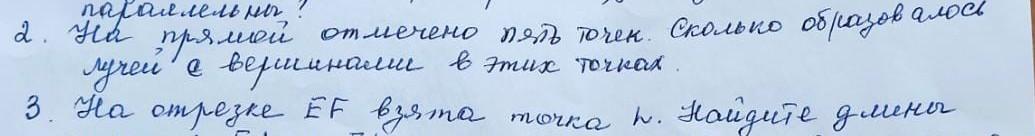 параллельны?
2. На прямой отмечено пять точек. Сколько образовалось
лучей с вершинами в этих точках.
3. На отрезке EF взята точка h. Найдите длины